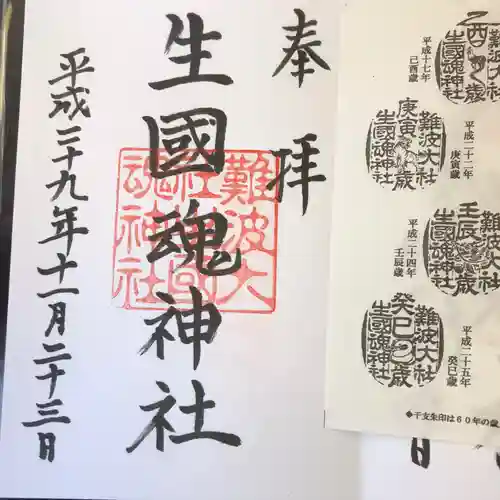 奉拝
生國魂神社
難波大
社生國
魂神社
平成二十九年十一月二十三日
乙酉歳
難波大社
生國魂神社
平成十七年
己酉歳
庚寅歳
難波大社
生國魂神社
平成二十二年
庚寅歳
壬辰歳
難波大社
生國魂神社
平成二十四年
壬辰歳
癸巳歳
難波大社
生國魂神社
平成二十五年
癸巳歳
◆干支朱印は60年の歳
日